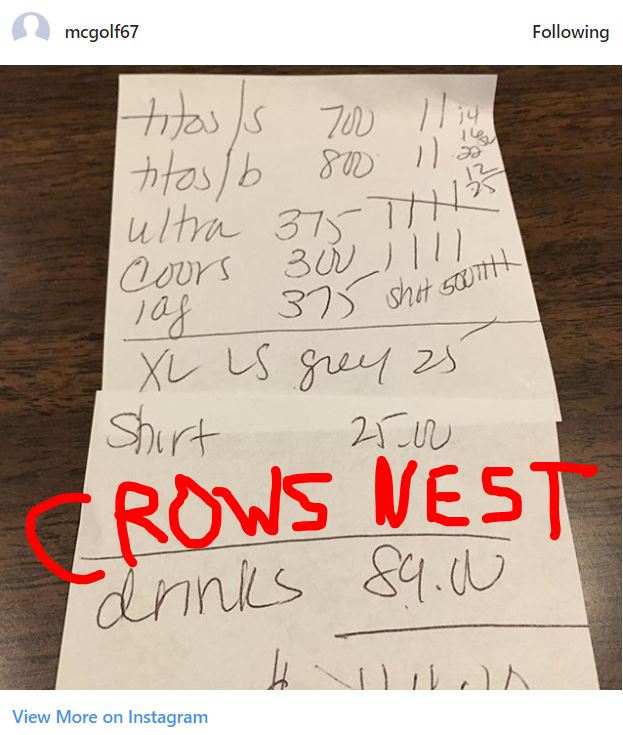 mcgolf67 Following
titos/s 700 11 14
16
titos/b 800 11 22
12
25
ultra 375
Coors 300 1111
375 shot 500
XL LS grey 25
Shirt 25.00
CROWS NEST
drinks 89.00
View More on Instagram